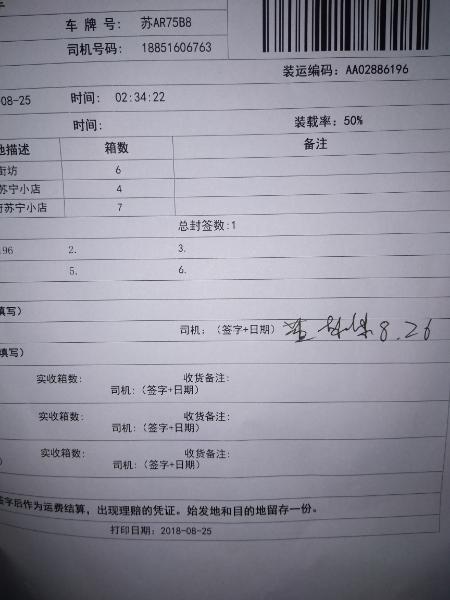 车 牌 号: 苏AR75B8
司机号码: 18851606763
装运编码: AA02886196
08-25 时间: 02:34:22
时间: 装载率: 50%
地描述 箱数 备注
街坊 6
苏宁小店 4
苏宁小店 7
总封签数:1
196 2. 3.
5. 6.
填写)
司机: (签字+日期) 8.26
填写)
实收箱数: 收货备注:
司机:(签字+日期)
实收箱数: 收货备注:
司机:(签字+日期)
实收箱数: 收货备注:
司机:(签字+日期)
签字后作为运费结算, 出现理赔的凭证。始发地和目的地留存一份。
打印日期: 2018-08-25